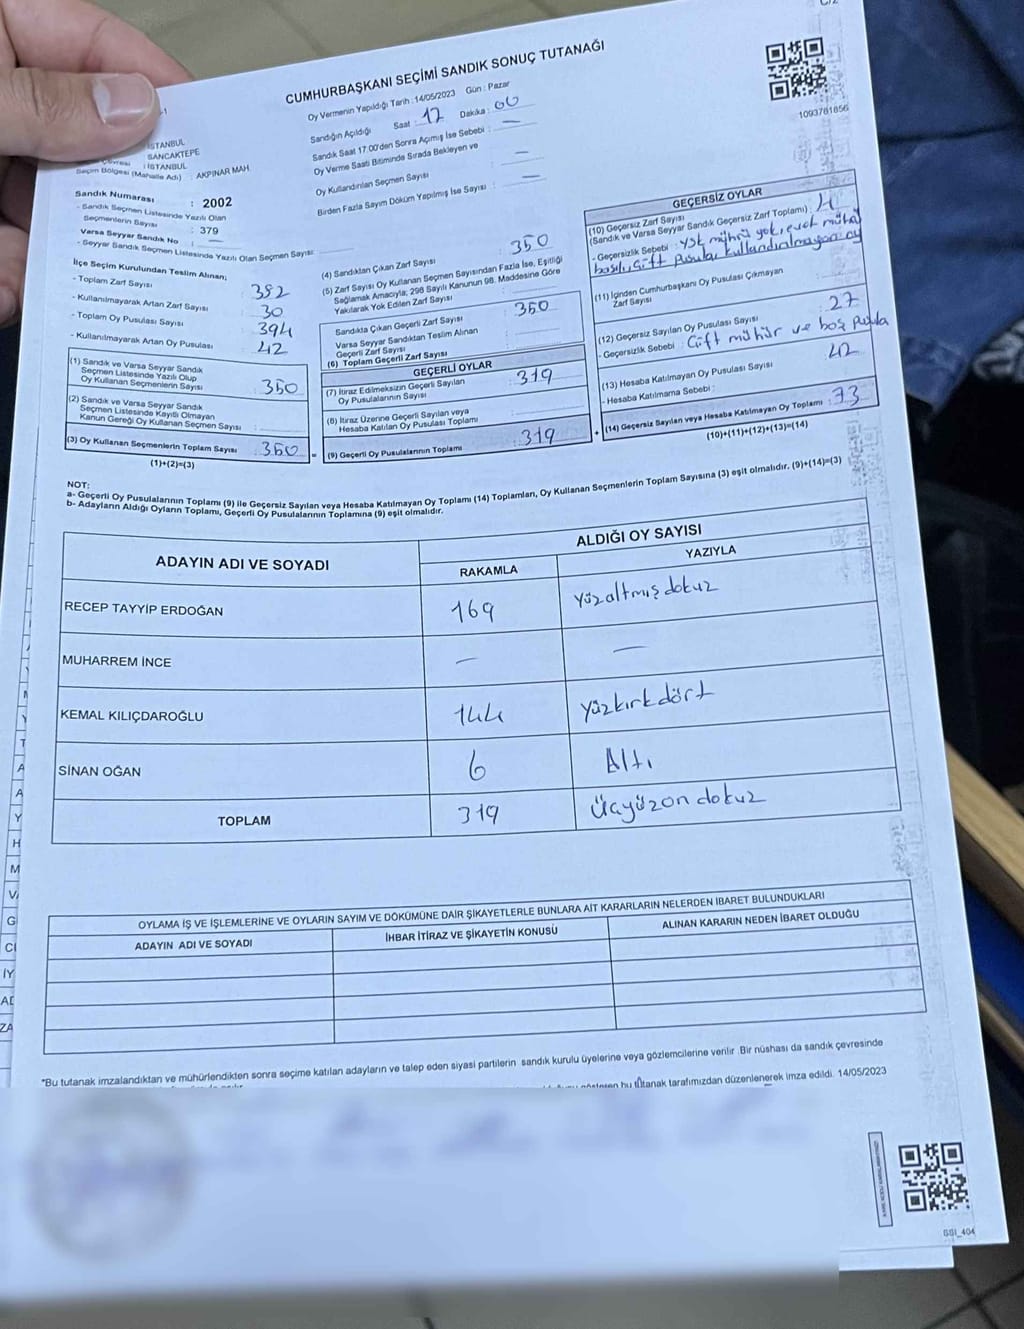 CUMHURBAŞKANI SEÇİMİ SANDIK SONUÇ TUTANAĞI
Oy Vermenin Yapıldığı Tarih : 14/05/2023 Gün : Pazar
Sandığın Açıldığı Saat : 17 Dakika : 00
Sandık Saat 17.00'den Sonra Açılmış İse Sebebi : —
Oy Verme Saati Bitiminde Sırada Bekleyen ve
Oy Kullandırılan Seçmen Sayısı —
Birden Fazla Sayım Döküm Yapılmış İse Sayısı : —
1093781856
İSTANBUL
SANCAKTEPE
: İSTANBUL
Seçim Bölgesi (Mahalle Adı) : AKPINAR MAH
Sandık Numarası : 2002
- Sandık Seçmen Listesinde Yazılı Olan
Seçmenlerin Sayısı : 379
Varsa Seyyar Sandık No : —
- Seyyar Sandık Seçmen Listesinde Yazılı Olan Seçmen Sayısı:
İlçe Seçim Kurulundan Teslim Alınan;
- Toplam Zarf Sayısı : 382
- Kullanılmayarak Artan Zarf Sayısı : 30
- Toplam Oy Pusulası Sayısı : 394
- Kullanılmayarak Artan Oy Pusulası : 42
(1) Sandık ve Varsa Seyyar Sandık
Seçmen Listesinde Yazılı Olup
Oy Kullanan Seçmenlerin Sayısı : 350
(2) Sandık ve Varsa Seyyar Sandık
Seçmen Listesinde Kayıtlı Olmayan
Kanun Gereği Oy Kullanan Seçmen Sayısı :
(3) Oy Kullanan Seçmenlerin Toplam Sayısı : 350
(1)+(2)=(3)
(4) Sandıktan Çıkan Zarf Sayısı 350
(5) Zarf Sayısı Oy Kullanan Seçmen Sayısından Fazla İse, Eşitliği
Sağlamak Amacıyla; 298 Sayılı Kanunun 98. Maddesine Göre
Yakılarak Yok Edilen Zarf Sayısı :
Sandıkta Çıkan Geçerli Zarf Sayısı : 350
Varsa Seyyar Sandıktan Teslim Alınan
Geçerli Zarf Sayısı
(6) Toplam Geçerli Zarf Sayısı
GEÇERLİ OYLAR
(7) İtiraz Edilmeksizin Geçerli Sayılan
Oy Pusulalarının Sayısı : 319
(8) İtiraz Üzerine Geçerli Sayılan veya
Hesaba Katılan Oy Pusulası Toplamı :
(9) Geçerli Oy Pusulalarının Toplamı : 319
GEÇERSİZ OYLAR
(10) Geçersiz Zarf Sayısı
(Sandık ve Varsa Seyyar Sandık Geçersiz Zarf Toplamı) : 4
- Geçersizlik Sebebi : YSK mührü yok, evet mührü
basılı, Çift pusula kullandırılmayan oy
(11) İçinden Cumhurbaşkanı Oy Pusulası Çıkmayan
Zarf Sayısı :
(12) Geçersiz Sayılan Oy Pusulası Sayısı : 27
- Geçersizlik Sebebi : Çift mühür ve boş pusula
(13) Hesaba Katılmayan Oy Pusulası Sayısı 42
- Hesaba Katılmama Sebebi :
(14) Geçersiz Sayılan veya Hesaba Katılmayan Oy Toplamı : 73
(10)+(11)+(12)+(13)=(14)
NOT:
a- Geçerli Oy Pusulalarının Toplamı (9) ile Geçersiz Sayılan veya Hesaba Katılmayan Oy Toplamı (14) Toplamları, Oy Kullanan Seçmenlerin Toplam Sayısına (3) eşit olmalıdır. (9)+(14)=(3)
b- Adayların Aldığı Oyların Toplamı, Geçerli Oy Pusulalarının Toplamına (9) eşit olmalıdır.
ADAYIN ADI VE SOYADI
ALDIĞI OY SAYISI
RAKAMLA YAZIYLA
RECEP TAYYİP ERDOĞAN 169 yüzaltmış dokuz
MUHARREM İNCE — —
KEMAL KILIÇDAROĞLU 144 yüzkırkdört
SİNAN OĞAN 6 Altı
TOPLAM 319 Üçyüzon dokuz
OYLAMA İŞ VE İŞLEMLERİNE VE OYLARIN SAYIM VE DÖKÜMÜNE DAİR ŞİKAYETLERLE BUNLARA AİT KARARLARIN NELERDEN İBARET BULUNDUKLARI
ADAYIN ADI VE SOYADI İHBAR İTİRAZ VE ŞİKAYETİN KONUSU ALINAN KARARIN NEDEN İBARET OLDUĞU
*Bu tutanak imzalandıktan ve mühürlendikten sonra seçime katılan adayların ve talep eden siyasi partilerin sandık kurulu üyelerine veya gözlemcilerine verilir. Bir nüshası da sandık çevresinde
bu tutanak tarafımızdan düzenlenerek imza edildi. 14/05/2023